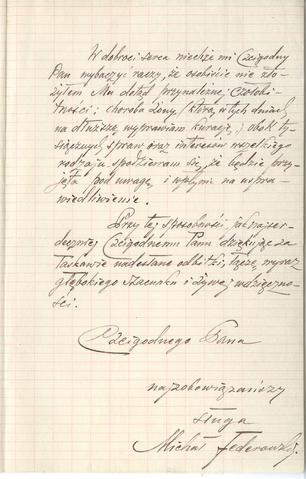 W dobroci serca niechże mi Czcigodny
Pan wybaczyć raczy, że osobiście nie zło-
żyłem Mu dotąd przynależnej czołobi-
tności; choroba żony, (którą w tych dniach
na dłuższą wyprawiam kurację,) obok ty-
siącznych spraw oraz interesów wszelkiego
rodzaju spodziewam się, że będzie przy-
jęta pod uwagę i wpłynie na uspra-
wiedliwienie.
Przy tej sposobności jak najser-
deczniej Czcigodnemu Panu dziękuję za
łaskawie nadesłane odbitki, łączę wyraz
głębokiego szacunku i żywej wdzięczno-
ści.
Czcigodnego Pana
najzobowiązańszy
sługa
Michał Federowski.